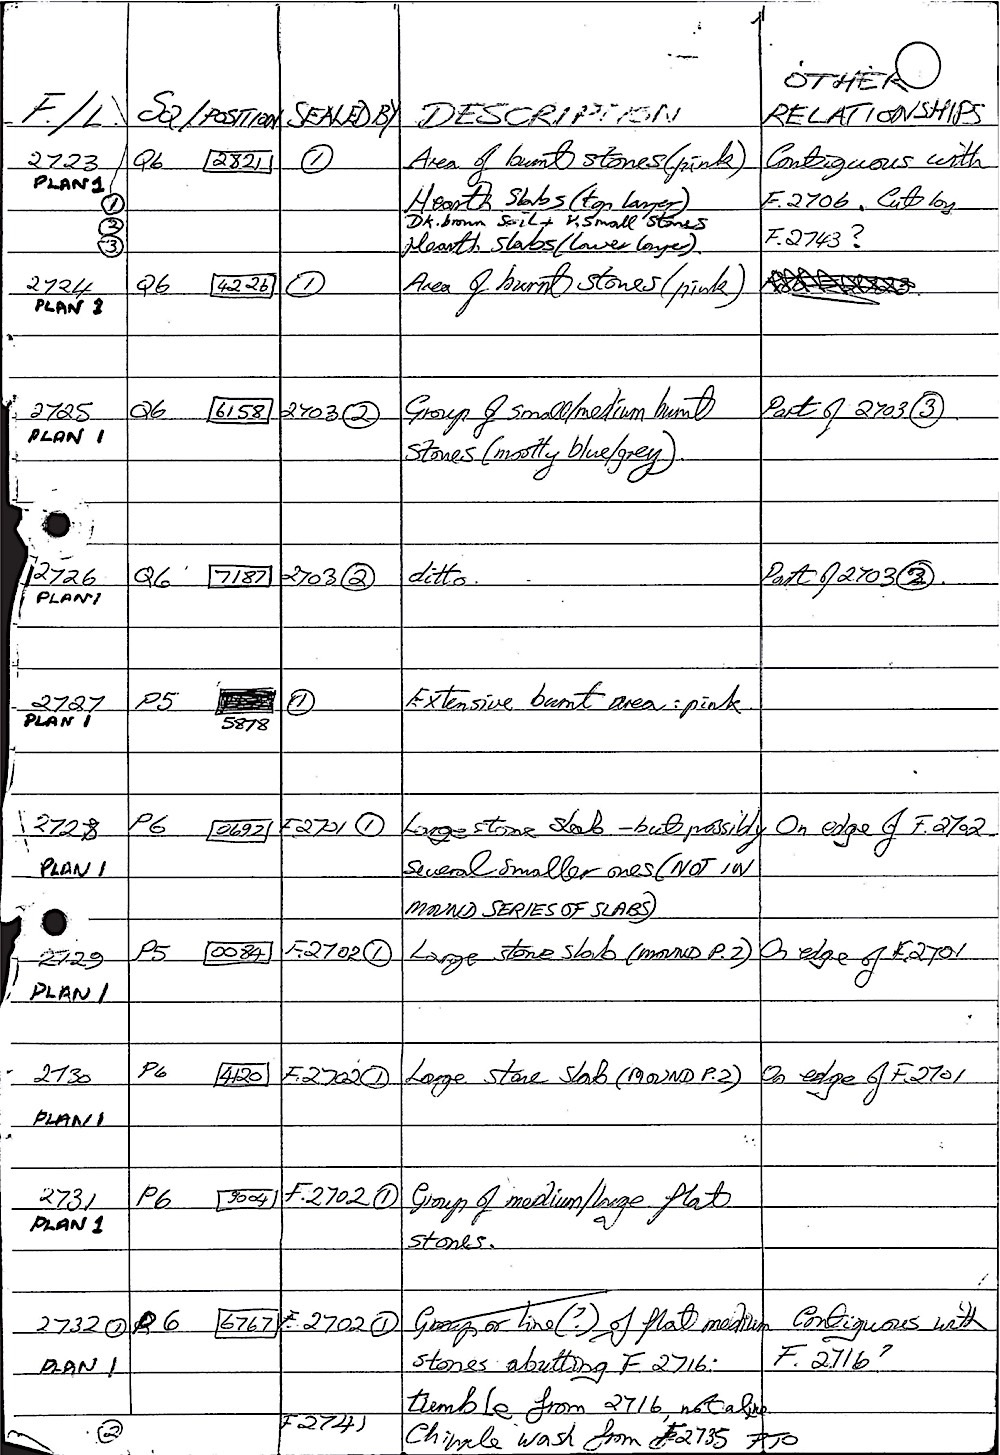 OTHER
F./L. SQ/POSITION SEALED BY DESCRIPTION RELATIONSHIPS
2723 Q6 2821 ① Area of burnt stones (pink) Contiguous with
PLAN 1
① Hearth slabs (top layer) F.2706. Cut by
② Dk. brown soil + V. small stones
③ Hearth slabs (lower layer). F.2743?
2724 Q6 4226 ① Area of burnt stones (pink)
PLAN
2725 Q6 6158 2703② Group of small/medium burnt Part of 2703③
PLAN 1
stones (mostly blue/grey).
2726 Q6 7187 2703② ditto. Part of 2703
PLAN 1
2727 P5 ① Extensive burnt area: pink
PLAN 1 5878
2728 P6 0692 F.2701① Large stone slab - but possibly On edge of F.2702
PLAN 1 several smaller ones (NOT IN
MOUND SERIES OF SLABS)
2729 P5 0084 F.2702① Large stone slab (MOUND P.2) On edge of F.2701
PLAN 1
2730 P6 4120 F.2702① Large stone slab (MOUND P.2) On edge of F.2701
PLAN 1
2731 P6 F.2702① Group of medium/large flat
PLAN 1
stones.
2732① Q6 6767 F.2702① Group or line(?) of flat medium Contiguous with
PLAN 1 stones abutting F 2716: F. 2716?
tumble from 2716, not aline
② F2741 wash from F2735 PTO